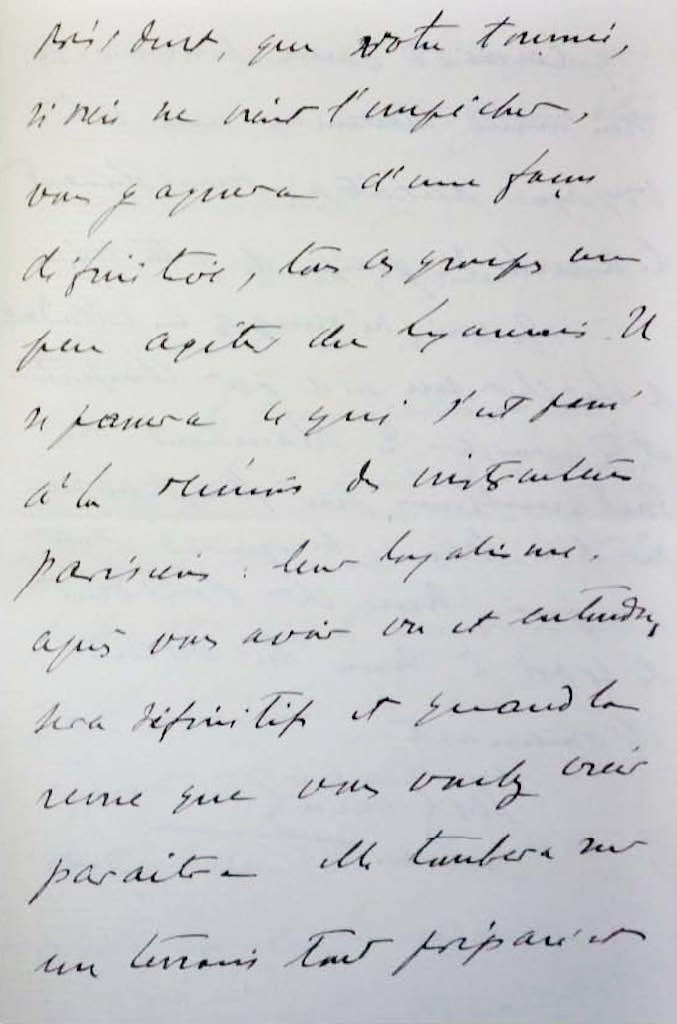 Président, que votre tournée,
si rien ne vient l'empêcher,
vous gagnera d'une façon
définitive, tous ces groupes un
peu agités du lyonnais. Il
se passera ce qui s'est passé
à la réunion des instructeurs
parisiens : leur loyalisme,
après vous avoir vu et entendu,
sera définitif et quand la
revue que vous voulez créer
paraitra elle tombera sur
un terrain tout préparé et